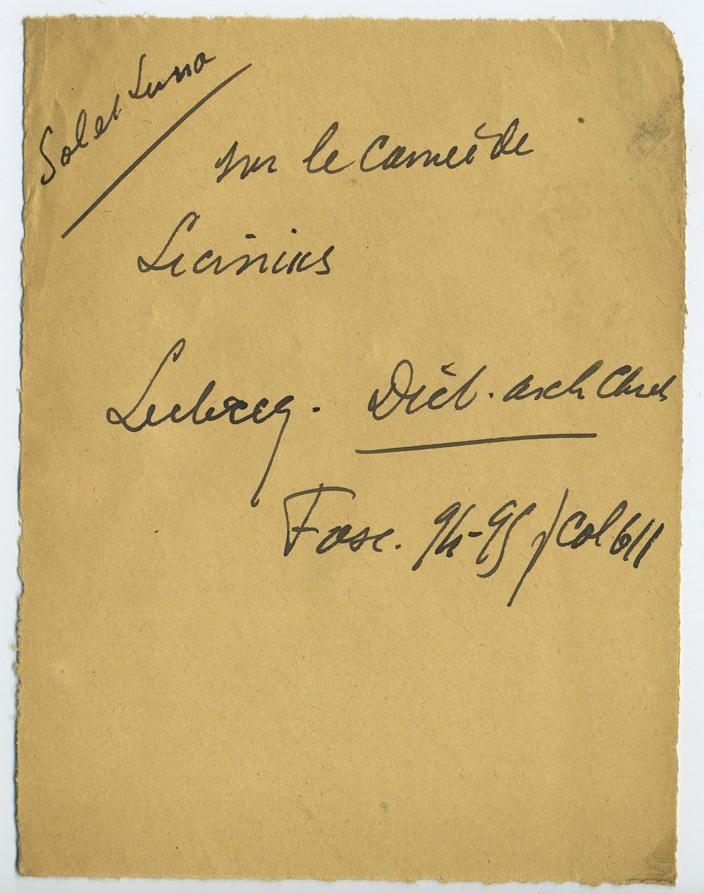 Sol et Luna
sur le Camée de
Licinius
Leclercq. Dict. arch Chret
Fasc. 94-95 / Col 611